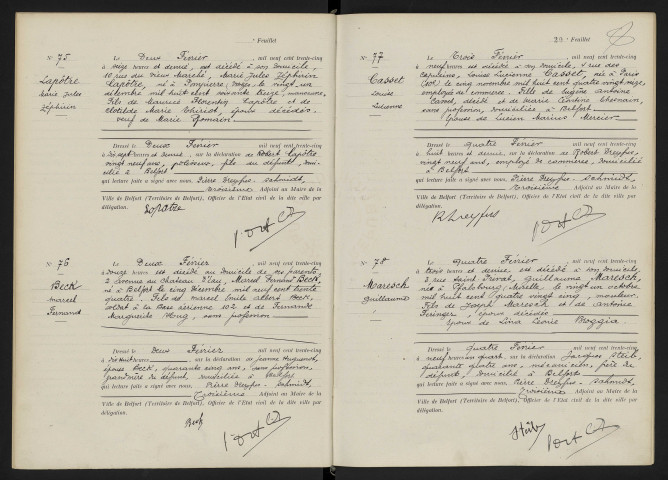 2e Feuillet
No 75
Lapôtre
Marie Jules
Zéphirin
Le Deux Février, mil neuf cent trente-cinq
à seize heures et demie, est décédé à son domicile,
10 rue du Vieux Marché, Marie Jules Zéphirin
Lapôtre, né à
décembre mil huit cent soixante treize,
Fils de Maurice Florentin Lapôtre et de
Clotilde Marie Thiriot, époux décédés.
veuf de Marie Romain
Dressé le Deux Février, mil neuf cent trente-cinq
à dix sept heures et demie, sur la déclaration de Robert Lapôtre
vingt neuf ans, fils du défunt, domi-
cilié à Belfort
qui lecture faite a signé avec nous, Pierre Dreyfus-Schmidt,
troisième Adjoint au Maire de la
Ville de Belfort (Territoire de Belfort), Officier de l'Etat civil de la dite ville par
délégation.
Lapôtre
No 76
Beck
Marcel
Fernand
Le Deux Février, mil neuf cent trente-cinq
à douze heures est décédé au domicile de ses parents,
2 avenue du Château d'Eau, Marcel Fernand Beck,
né à Belfort le cinq décembre mil neuf cent trente
quatre. Fils de Marcel Emile Albert Beck,
soldat à la Base aérienne 102 et de Fernande
Marguerite Hong, sans profession
Dressé le Deux Février, mil neuf cent trente-cinq
à dix huit heures, sur la déclaration de Jeanne
épouse Beck, quarante cinq ans, sans profession,
grand'mère du défunt, domiciliée à Belfort
qui lecture faite a signé avec nous, Pierre Dreyfus-Schmidt,
troisième Adjoint au Maire de la
Ville de Belfort (Territoire de Belfort), Officier de l'Etat civil de la dite ville par
délégation.
Beck
20e Feuillet
No 77
Casset
Louise
Lucienne
Le Trois Février, mil neuf cent trente-cinq
à neuf heures est décédée à son domicile, 4 rue des
Capucins, Louise Lucienne Casset, née à Paris
le cinq novembre mil huit cent quatre vingt onze,
employée de commerce. Fille de Eugène Antoine
Casset, décédé et de Marie
sans profession, domiciliée à Belfort
Epouse de Lucien Marius Mercier
Dressé le quatre Février, mil neuf cent trente-cinq
à huit heures et demie, sur la déclaration de Robert Dreyfus,
vingt neuf ans, employé de commerce, domicilié
à Belfort
qui lecture faite a signé avec nous, Pierre Dreyfus-Schmidt,
troisième Adjoint au Maire de la
Ville de Belfort (Territoire de Belfort), Officier de l'Etat civil de la dite ville par
délégation.
R Dreyfus
No 78
Maresch
Guillaume
Le quatre Février, mil neuf cent trente-cinq
à trois heures et demie est décédé à son domicile,
3 rue Saint Guillaume Maresch,
né à Phalsbourg, Moselle, le vingt un octobre
mil huit cent quatre vingt cinq, monteur.
Fils de Joseph Maresch et de Antoinie
époux décédés
Epoux de Lina Léonie Broggia
Dressé le quatre Février, mil neuf cent trente-cinq
à neuf heures un quart, sur la déclaration de Jacques Steib,
quarante quatre ans, mécanicien,
défunt, domicilié à Belfort
qui lecture faite a signé avec nous, Pierre Dreyfus-Schmidt,
troisième Adjoint au Maire de la
Ville de Belfort (Territoire de Belfort), Officier de l'Etat civil de la dite ville par
délégation.
Steib